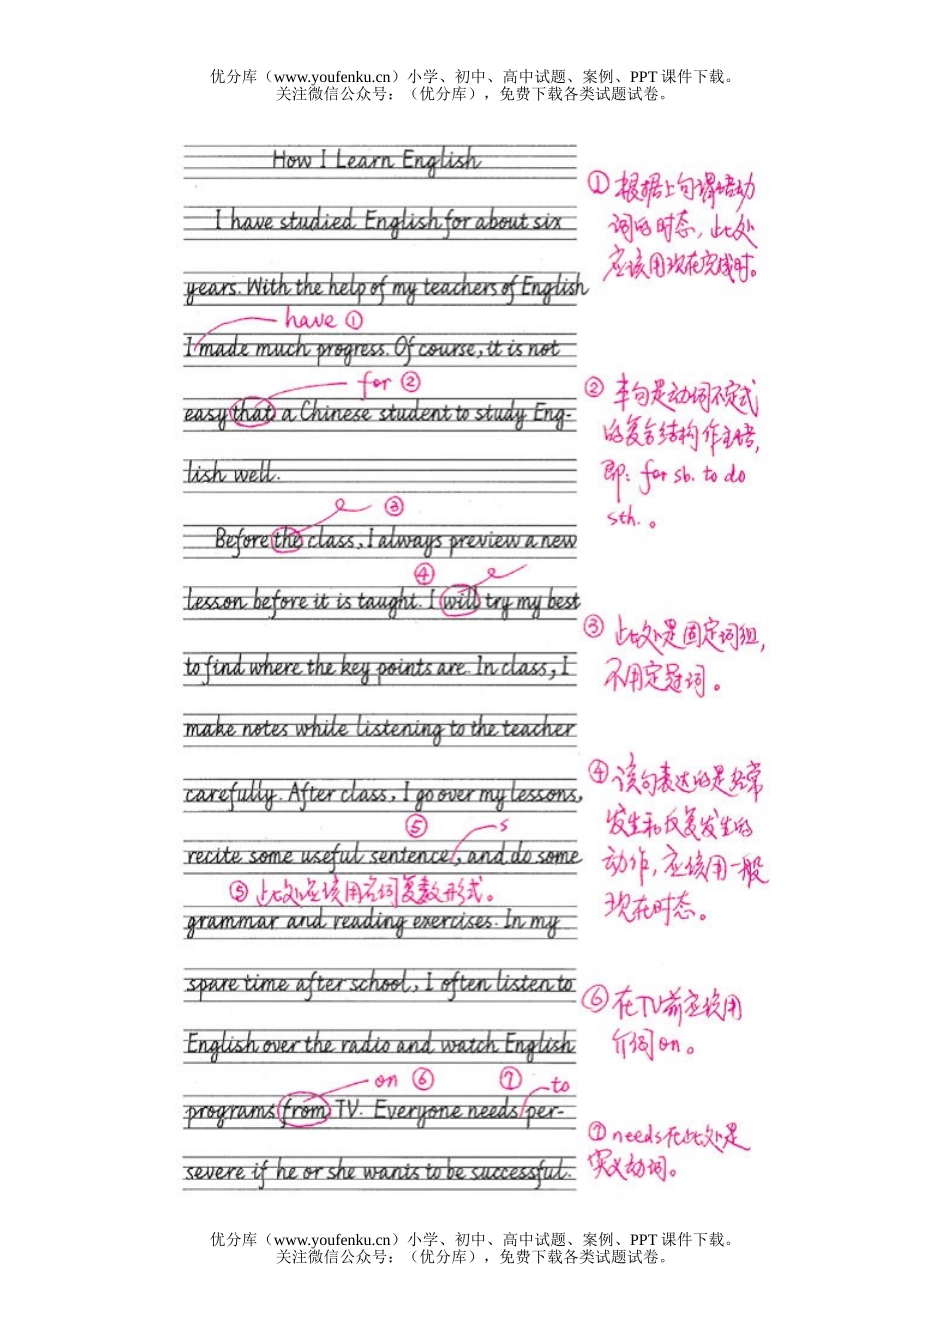 优分库（www.youfenku.cn）小学、初中、高中试题、案例、PPT 课件下载。
关注微信公众号：（优分库），免费下载各类试题试卷。
How I Learn English
I have studied English for about six
years. With the help of my teachers of English
have ①
I made much progress. Of course, it is not
for ②
easy that a Chinese student to study Eng-
lish well.
③
Before the class, I always preview a new
④
lesson before it is taught. I will try my best
to find where the key points are. In class, I
make notes while listening to the teacher
carefully. After class, I go over my lessons,
⑤ s
recite some useful sentence, and do some
⑤ 此处应该用名词复数形式。
grammar and reading exercises. In my
spare time after school, I often listen to
English over the radio and watch English
on ⑥ ⑦ to
programs from TV. Everyone needs per-
severe if he or she wants to be successful.
① 根据上句谓语动
词的时态，此处
应该用现在完成时。
② 本句是动词不定式
的复合结构作主语，
即：for sb. to do
sth.。
③ 此处是固定词组，
不用定冠词。
④ 该句表达的是经常
发生和反复发生的
动作，应该用一般
现在时态。
⑥ 在TV前应该用
介词on。
⑦ needs在此处是
实义动词。
优分库（www.youfenku.cn）小学、初中、高中试题、案例、PPT 课件下载。
关注微信公众号：（优分库），免费下载各类试题试卷。